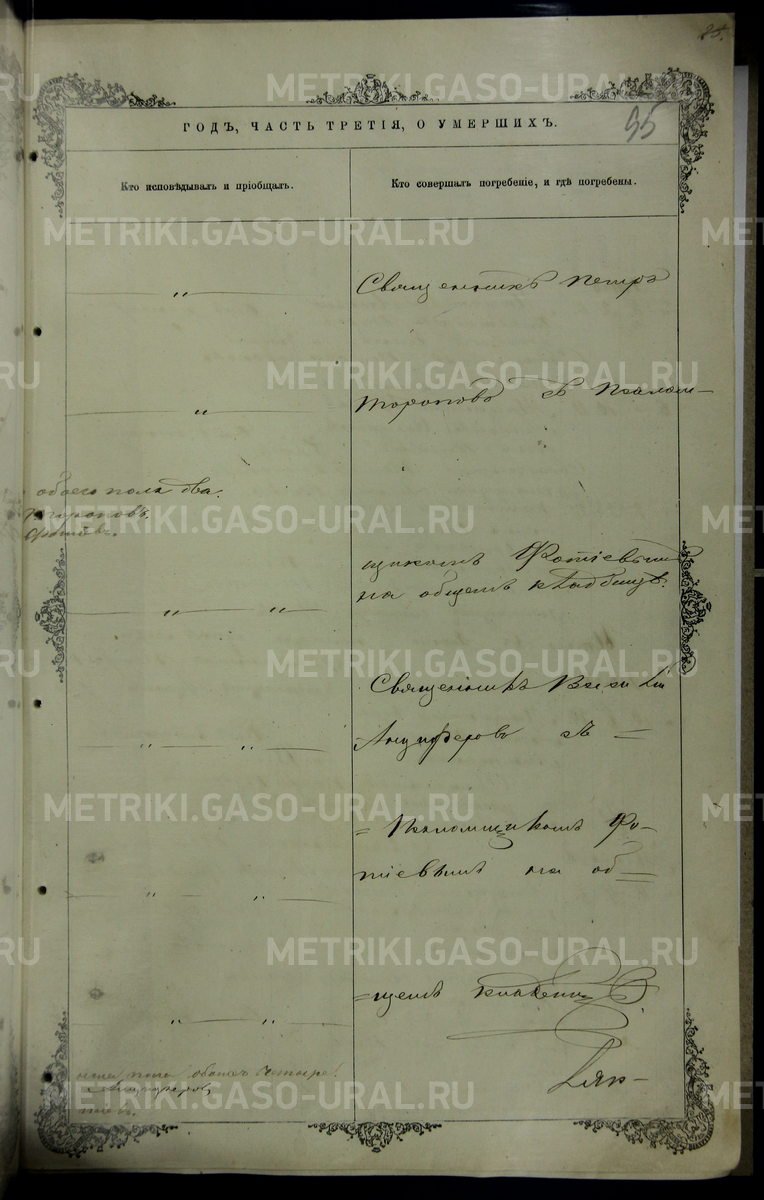 85.
95
ГОДЪ, ЧАСТЬ ТРЕТІЯ, О УМЕРШИХЪ.
Кто исповѣдывалъ и пріобщалъ.
Кто совершалъ погребеніе, и гдѣ погребены.
Священникъ Петръ
Топоровъ съ Псалом-
обоего пола два.
щикомъ Фотіевымъ
на общемъ кладбищѣ.
Священникъ
Анциферовъ съ
= Псаломщикомъ Фо-
тіевымъ на об=
=щемъ кладбищѣ
пола обоего четыре.
Дяк-
METRIKI.GASO-URAL.RU